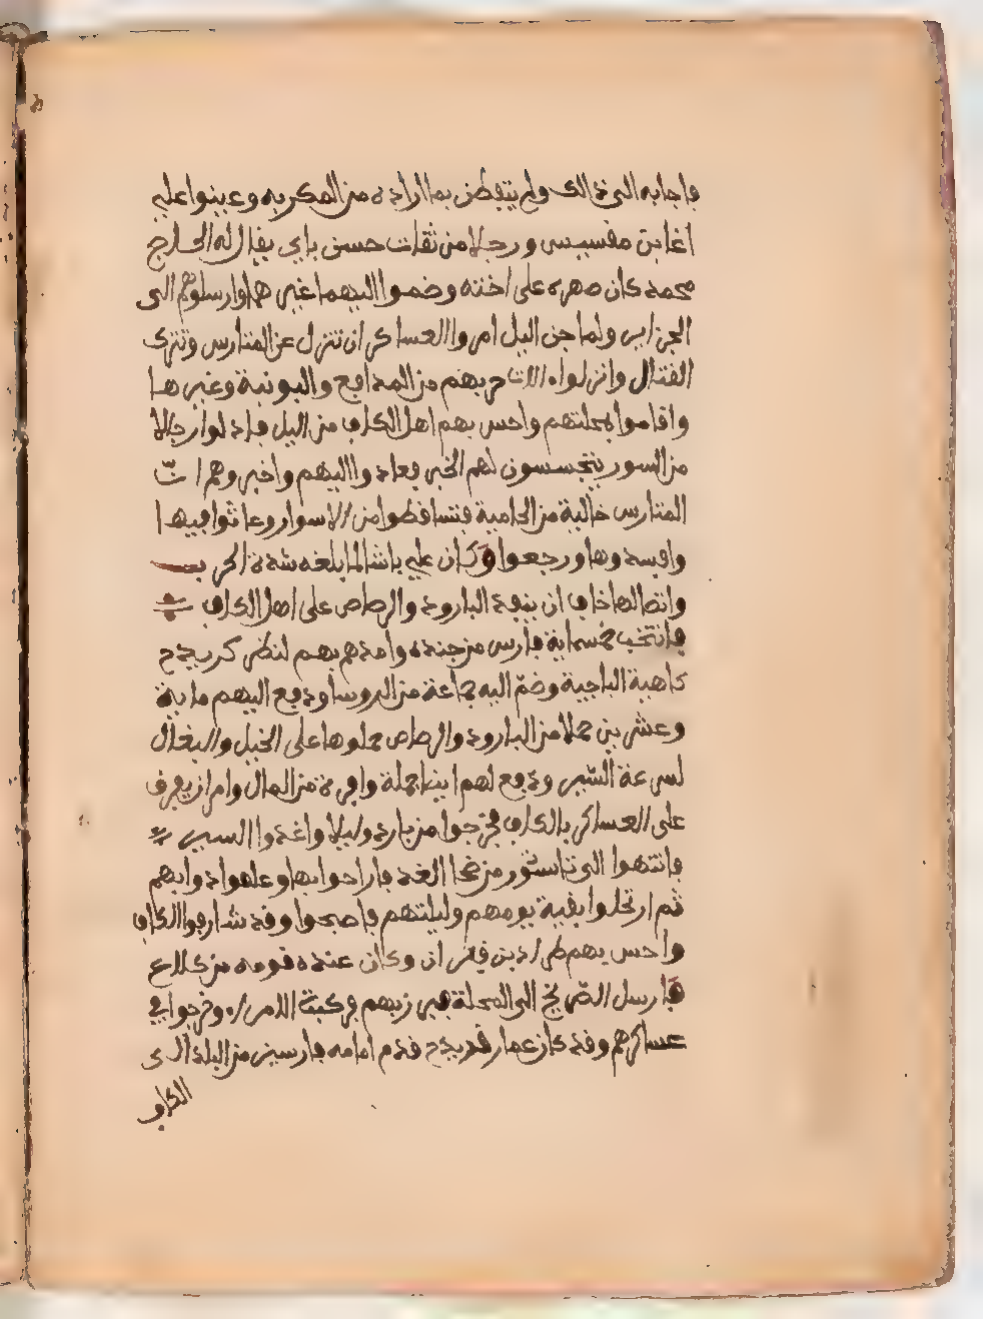 فاجابه الى ذالك ولم يتفطن بما اراده من المكر به وعينوا عليه
اغا بن مفسيس ورجلا من ثقات حسن باي يقال له الحاج
محمد كان صهره على اخته وضموا اليهما غيرهما وارسلوهم الى
الجزاير ولما جن اليل امروا العساكر ان تنزل عن المتارس وتترك
القتال وانزلوا بهم من المدافع والبونبة وغيرها
واقاموا بمحلتهم واحس بهم اهل الكاف من اليل فادلوا رجالا
من السور يتجسسون لهم الخبر فعادوا اليهم واخبروهم ان
المتارس خالية من الحامية فتساقطوا من الاسوار وعاثوا فيها
وافسدوها ورجعوا وكان علي باشا لما بلغه شدة الحرب
واتصالها خاف ان ينفد البارود والرصاص على اهل الكاف
فانتخب خمسماية فارس من جنده وامدهم بهم لنظر كريدح
كاهية الباجية وضم اليه جماعة من الروسا ودفع اليهم ماية
وعشرين حملا من البارود والرصاص حملوها على الخيل والبغال
لسرعة السير ودفع لهم ايضا جملة وافرة من المال وامر ان يفرق
على العساكر بالكاف فخرجوا من باردو ليلا واغذوا السير
فانتهوا الى تابسور من ضحا الغد فاراحوا بها وعلفوا دوابهم
ثم ارتحلوا بقية يومهم وليلتهم فاصبحوا وقد شارفوا الكاف
واحس بهم طراد بن قيزان وكان عنده قومه من كلاع
فارسل الصريخ الى المحلة فركبت الامراء وخرجوا في
عساكرهم وقد كان عمار قريدح قدم امامه فارسين من البلد الى
الكاف